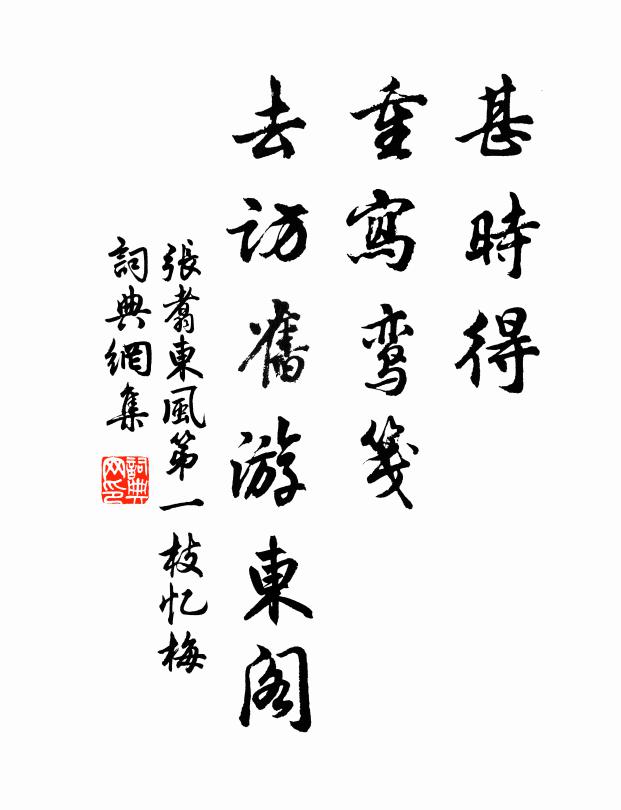 甚時得
重寫鸾箋
去訪舊游東阁
張翥東風第一枝忆梅
詞典網集
詞典
网印